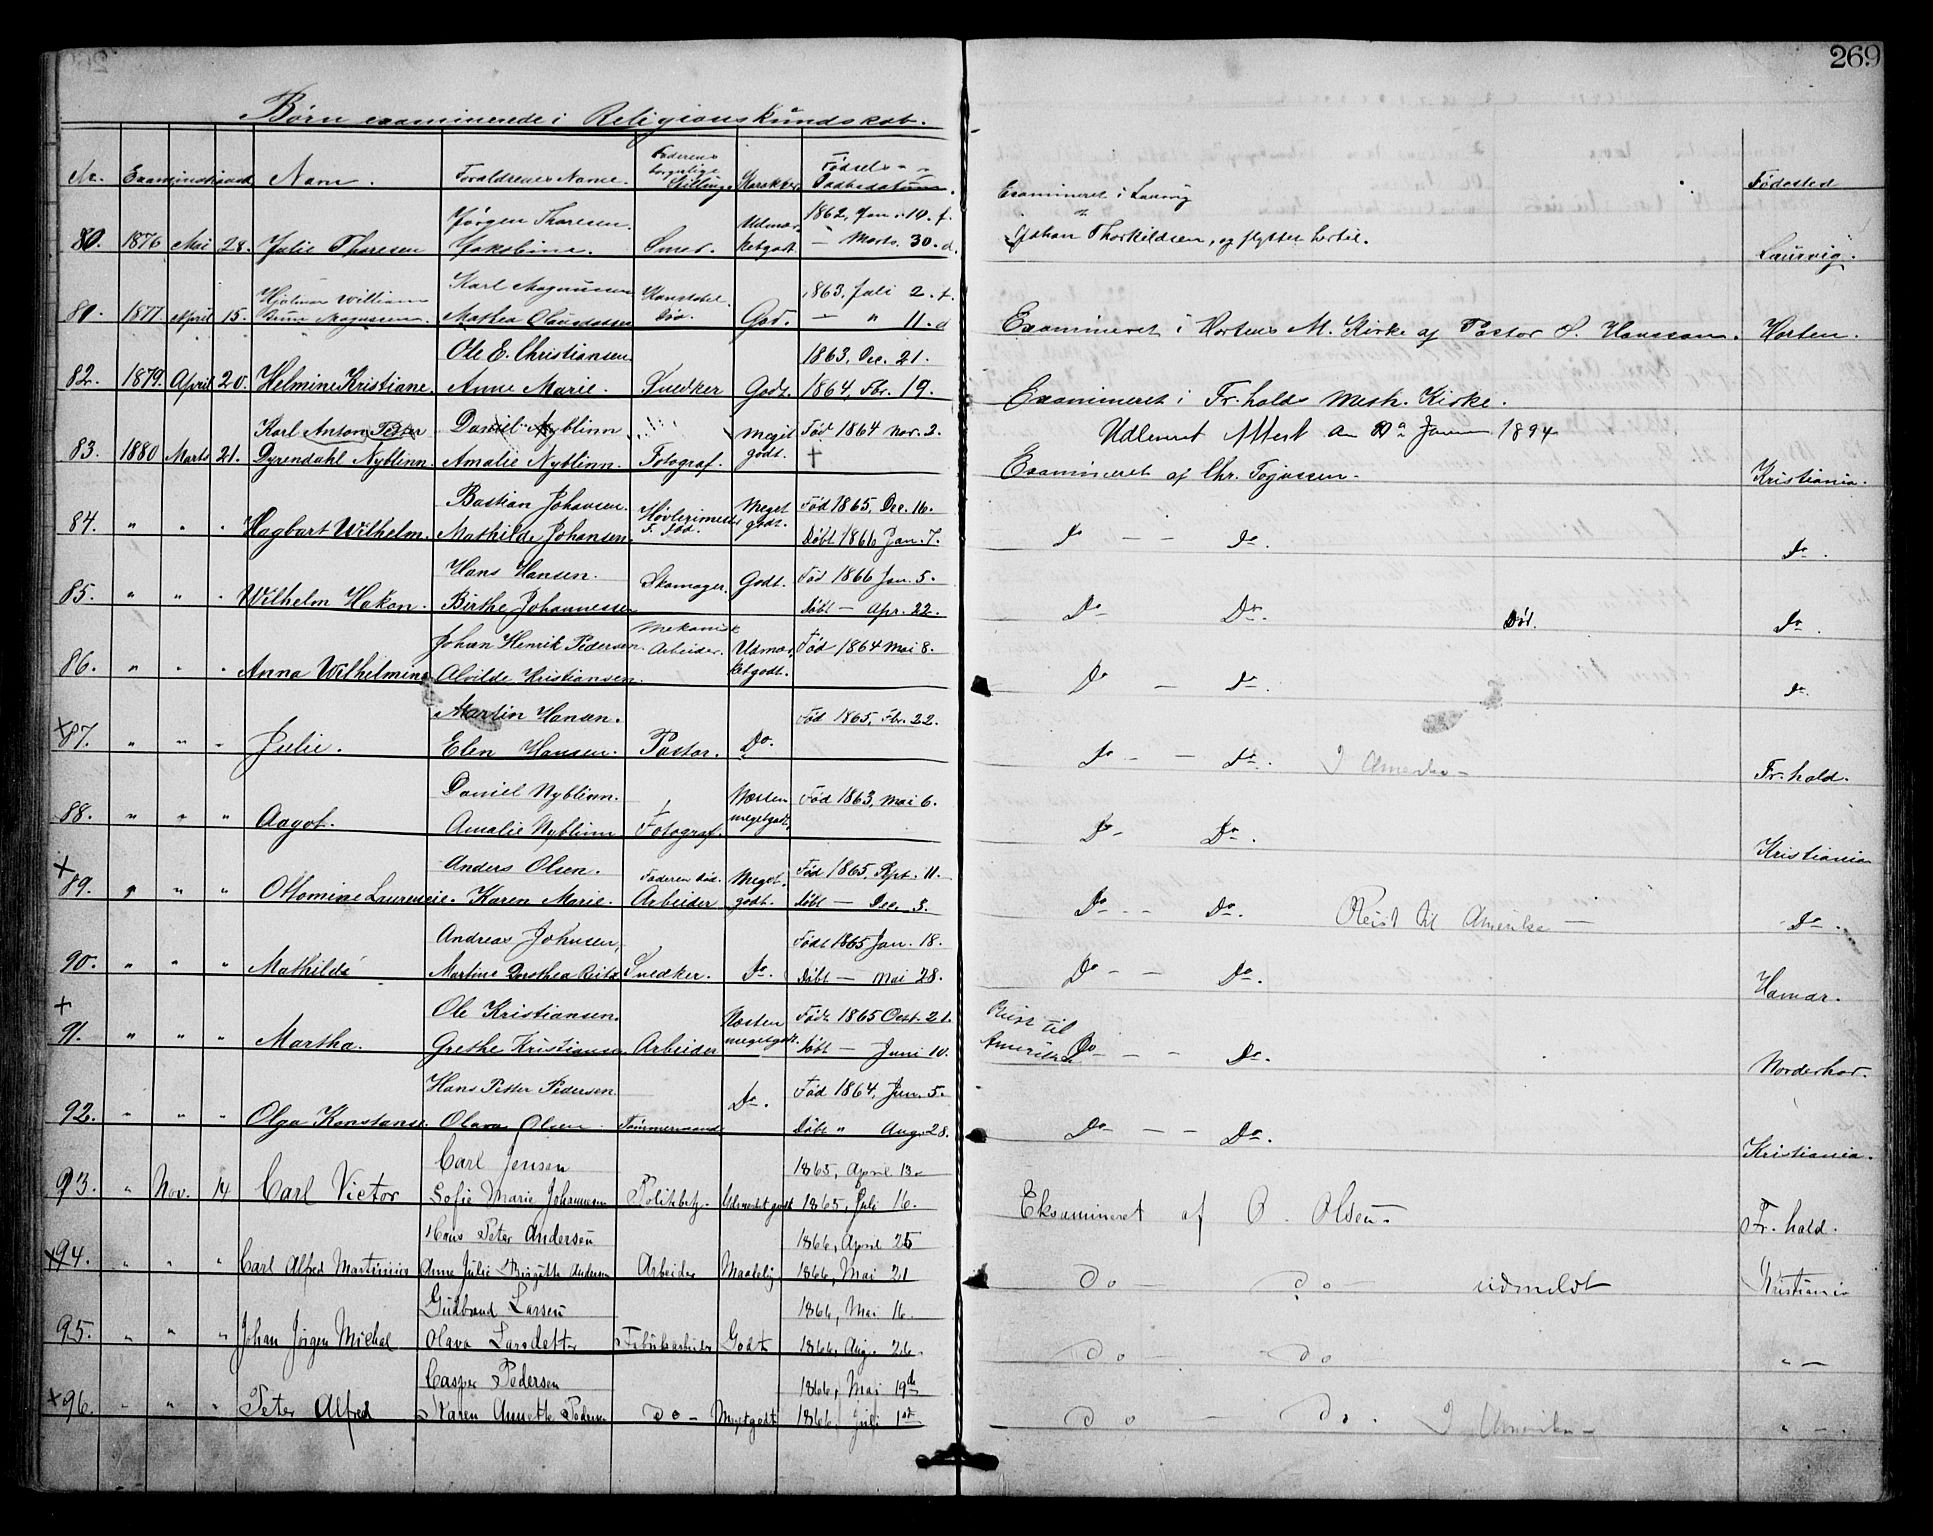 269
Børn examinerede i Religionskundskab.
Nr. Examinationsd. Navn. Forældrenes Navne. Faderens borgerlige Stilling. Karakter. Fødsels- og Daabsdatum. Fødested
80. 1876 Mai 28. Julie Thoresen Jørgen Thoresen. Jakobine. Smed. Udmærketgodt 1862, Jan. 10. f. — Marts. 30. d. Examineret i Laurvig Johan Thorkildsen, og flyttet hertil. Laurvig.
81. 1877 April 15. Hjalmar William Magnussen. Karl Magnussen Mathea Olausdatter Konstabel. død. God. 1863. Juli 2. f. — " 11. d Examineret i Hortens M. Kirke af Pastor S. Hanssen. Horten.
82. 1879. April 20. Helmine Kristiane. Ole E. Christiansen. Anne Marie. Snedker Godt. 1863. Dec. 21. 1864, Fbr. 19. Examineret i Fr.halds Meth. Kirke.
Udleveret Attest 1894
83. 1880 Marts 21. Karl Anton Peter Dyrendahl Nyblinn. Daniel Nyblinn Amalie Nyblinn. Fotograf. Meget godt. Fød 1864 Nov. 2. † Examineret af Chr. Kristiania.
84. " " " Hagbart Wilhelm. Bastian Johansen. Mathilde Johansen. F. død. Meget godt. Fød 1865, Dec. 16. Døbt 1866 Jan. 7. Do — — Do. Do.
85. " " " Wilhelm Hakon. Hans Hansen. Birthe Johannessen Skomager. Godt. Fød 1866 Jan. 5. Døbt — Apr. 22. Do Do. Død. Do.
86. " " " Anna Wilhelmine Johan Henrik Pedersen. Alvilde Kristiansen. Mekanisk Arbeider. Udmærketgodt. Fød 1864 Mai 8. Do — Do. Do.
×87. " " " Julie. Martin Hansen. Elen Hansen. Pastor. Do. Fød 1865, Fbr. 22. Do — — Do. I Amerika — Fr.hald.
88. " " " Aagot. Daniel Nyblinn. Amalie Nyblinn † Fotograf. Næsten megetgodt. Fød 1863, Mai 6. Do — Do. Kristiania
+89. " " " Ottomine Laurensie. Anders Olsen. Karen Marie. Faderen død. Arbeider Meget godt. Fød 1865, Spt. 11. Døbt — Dec. 3. Do — — Do. Reist til Amerika — Do.
90. " " " Mathilde Andreas Johnsen, Martine Dorothea Snedker. Do. Født 1865 Jan. 18. Døbt — Mai 28. Do — — Do. Hamar.
+91. " " " Martha. Ole Kristiansen. Grethe Kristiansen Arbeider Næsten megetgodt. Født 1865 Oct. 21. Døbt — Juni 10. Reist til Amerika Do — — Do. Norderhov.
92. " " " Olga Konstanse. Hans Petter Pedersen. Olava Olsen. Tømmermand Do. Fød 1864, Jun. 5. Døbt " Aug. 28. Do — — Do. Kristiania.
93. " Nov. 14 Carl Victor Carl Jensen Sofie Marie Johannesen Politibetj. Udmerket godt 1865, April 13. 1865, Juli 16. Eksamineret af O. Olsen. Fr. hald.
×94. " " " Carl Alfred Martinius Hans Peter Andersen Anne Julie Birgitte Andersen Arbeider Maadelig 1866, April 25 1866, Mai 21 Do — Do — udmeldt Kristiania
95. " " " Johan Jørgen Michal Gudbrand Larsen Olava Larsdatter Fabrikarbeider Godt 1866, Mai 16. 1866, Aug. 26. Do — Do " —
×96. " " " Peter Alfred Casper Pedersen Karen Annette Pedersen Do — Megetgodt 1866, Mai 19de 1866, Juli 1ste Do — Do. I Amerika — " —.